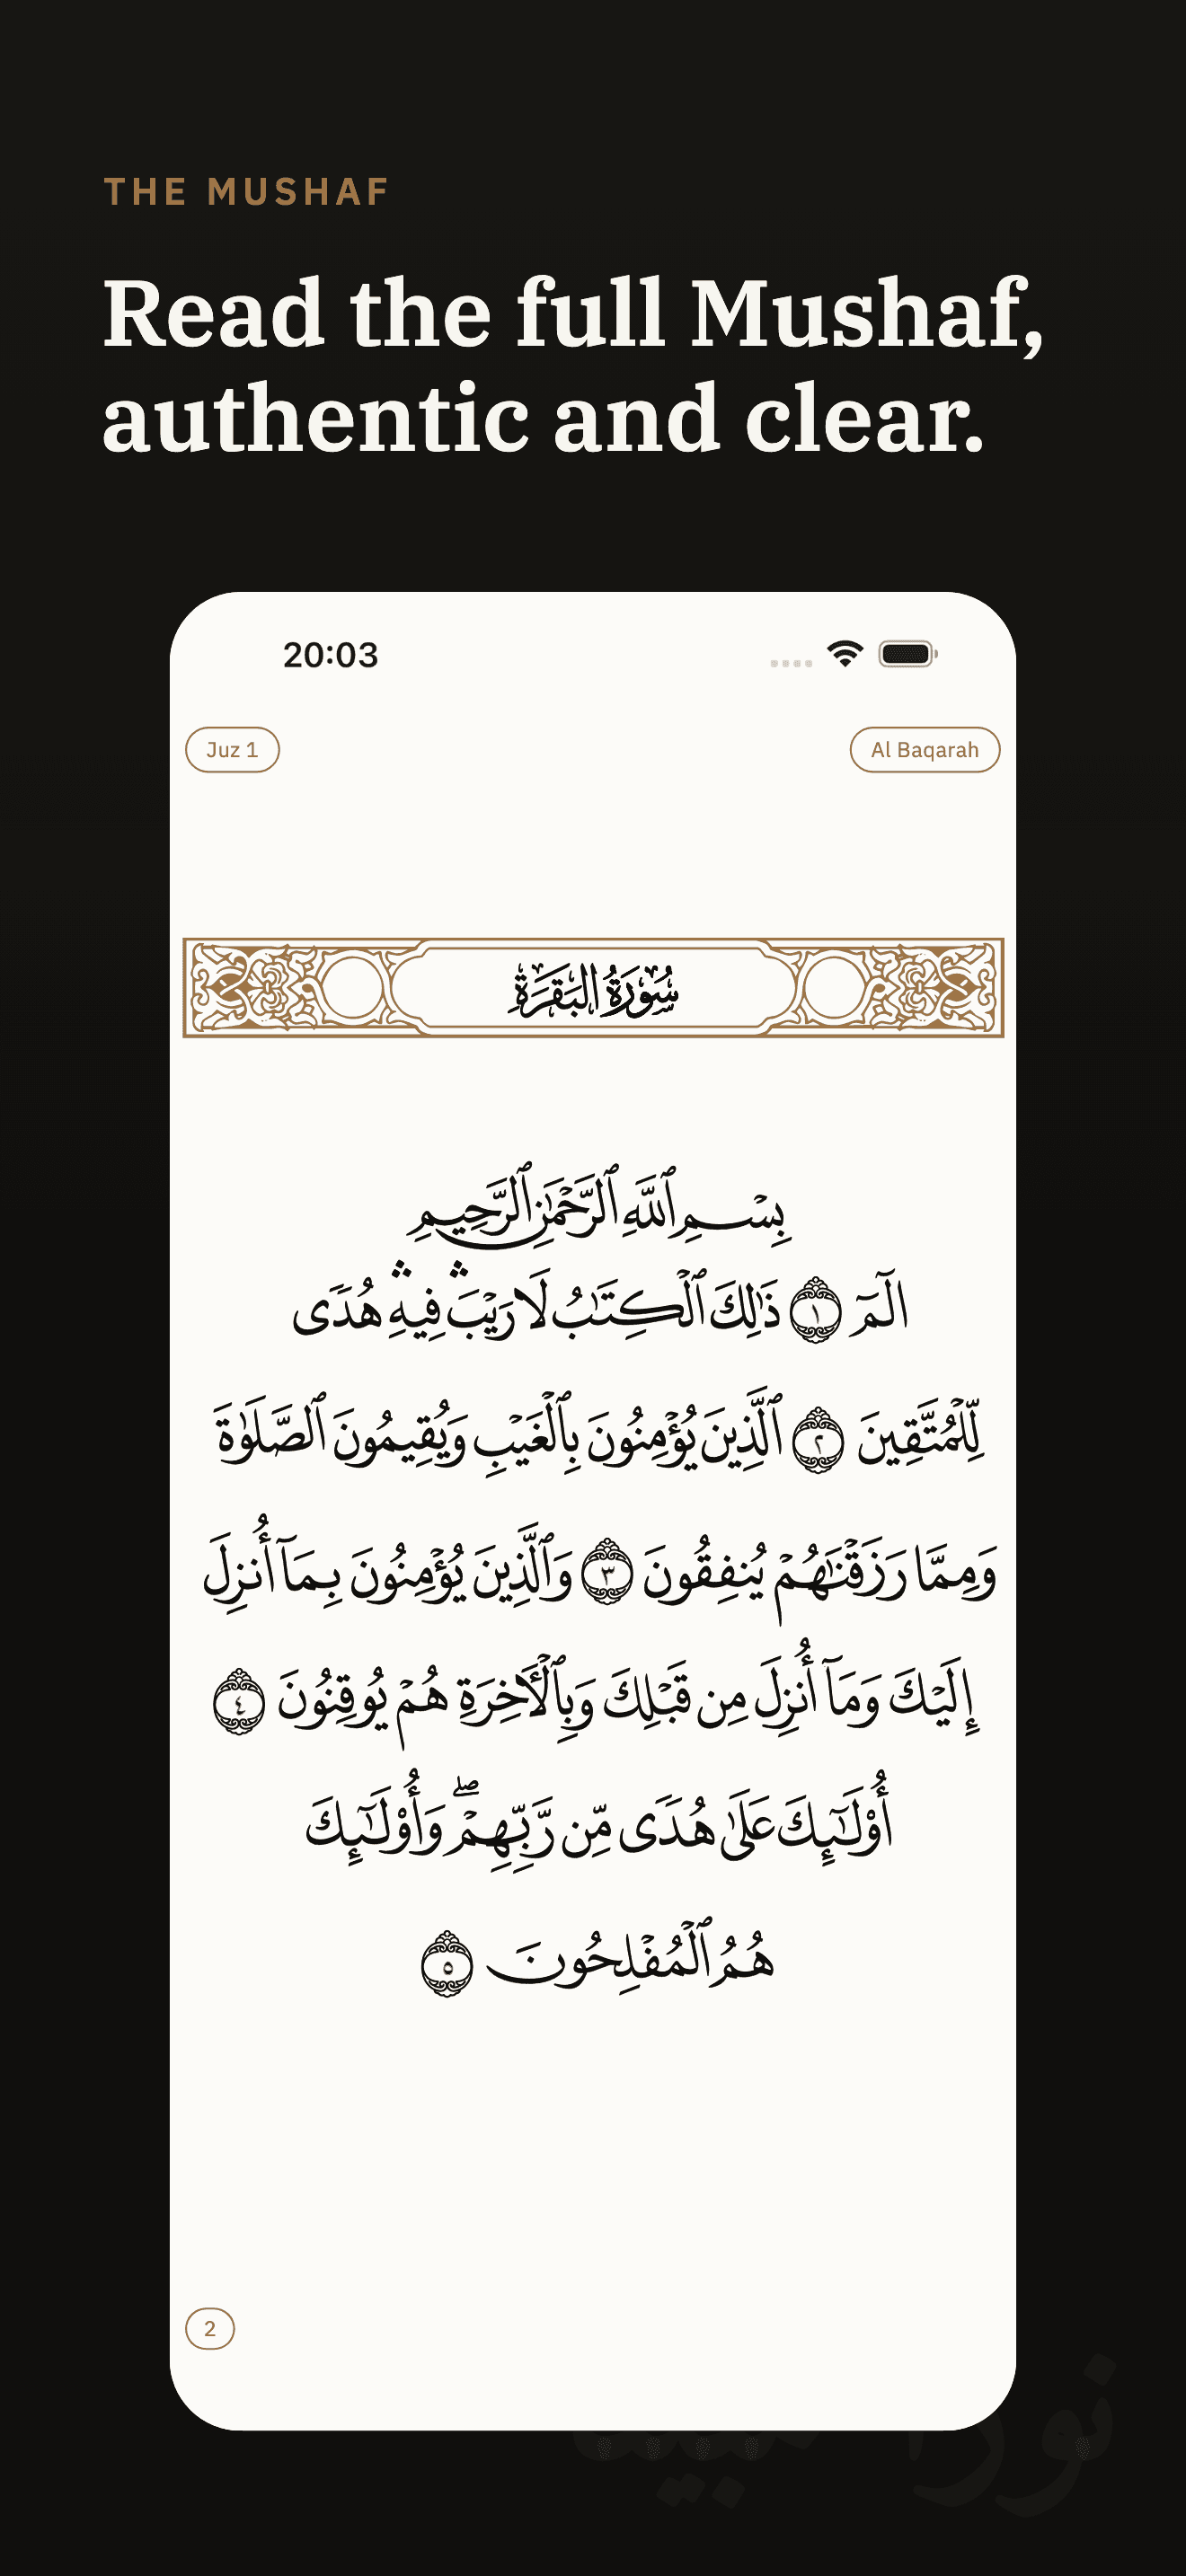 THE MUSHAF
Read the full Mushaf,
authentic and clear.
20:03
Juz 1
Al Baqarah
سُورَةُ البَقَرَةِ
بِسْمِ ٱللَّهِ ٱلرَّحْمَٰنِ ٱلرَّحِيمِ
الٓمٓ ١ ذَٰلِكَ ٱلْكِتَٰبُ لَا رَيْبَۛ فِيهِۛ هُدًى
لِّلْمُتَّقِينَ ٢ ٱلَّذِينَ يُؤْمِنُونَ بِٱلْغَيْبِ وَيُقِيمُونَ ٱلصَّلَوٰةَ
وَمِمَّا رَزَقْنَٰهُمْ يُنفِقُونَ ٣ وَٱلَّذِينَ يُؤْمِنُونَ بِمَآ أُنزِلَ
إِلَيْكَ وَمَآ أُنزِلَ مِن قَبْلِكَ وَبِٱلْأَخِرَةِ هُمْ يُوقِنُونَ ٤
أُو۟لَٰٓئِكَ عَلَىٰ هُدًى مِّن رَّبِّهِمْۖ وَأُو۟لَٰٓئِكَ
هُمُ ٱلْمُفْلِحُونَ ٥
2